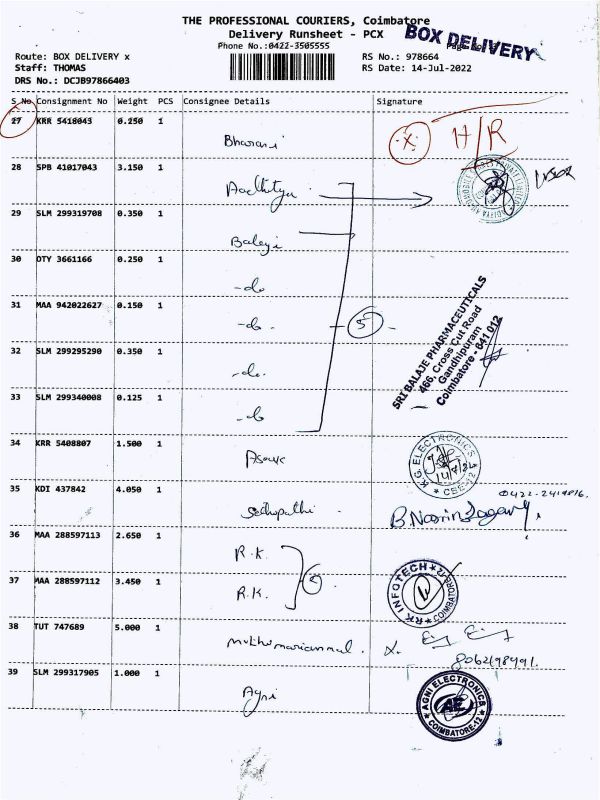 THE PROFESSIONAL COURIERS, Coimbatore
Delivery Runsheet - PCX
BOX DELIVERY
Phone No.:0422-3505555
Route: BOX DELIVERY x
RS No.: 978664
Staff: THOMAS
RS Date: 14-Jul-2022
DRS No.: DCJB97866403
S No Consignment No Weight PCS Consignee Details Signature
27 KRR 5418043 0.250 1
Bharani X H/R
28 SPB 41017043 3.150 1
Aadhitya
29 SLM 299319708 0.350 1
Balaji
30 OTY 3661166 0.250 1
-do
31 MAA 942022627 0.150 1
-do. 5
SRI BALAJE PHARMACEUTICALS
466, Cross Cut Road
Gandhipuram
Coimbatore - 641 012
32 SLM 299295290 0.350 1
-do.
33 SLM 299340008 0.125 1
-do
34 KRR 5408807 1.500 1
K.G. ELECTRONICS
CBE-12
35 KDI 437842 4.050 1
36 MAA 288597113 2.650 1
R.K.
37 MAA 288597112 3.450 1
R.K. 2
RK INFOTECH
COIMBATORE
38 TUT 747689 5.000 1
muthumariammal.
39 SLM 299317905 1.000 1
Agni
AGNI ELECTRONICS
AE
COIMBATORE-12